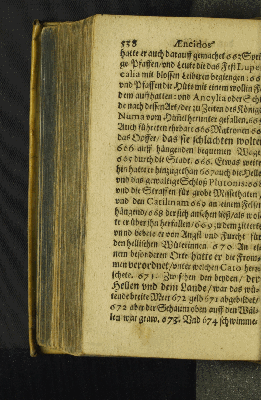 538 Æneidos
hatte er auch darauff gemacht 662 Spri
zo Pfaffen/vnd Leute die das Fest Luper
calia mit blossen Leibern begiengen: 66
vnd Pfaffen die Hüte mit einem wollin F
dem auffhatten: vnd Ancylia oder Schi
de nach dessen Art/der zu Zeiten des König
Numa vom Himel herunter gefallen. 665
Auch führeten ehrbare 666 Matronen 66
das Opffer/ das sie schlachten wolten
666 auff hängenden bequemen Wäge
665 durch die Stadt. 666. Etwas weite
hin hatte er hinzu gethan 667 auch die Hell
vnd das gewaltige Schloß Plutonis: 668
vnd die Straffen für grobe Missethaten,
vnd den Catilinam 669 an einem Felsen
hängend/668 der sich ansehen ließ/als wol
te er über ihn herfallen/669 zudem zitterte
vnd bebete er von Angst vnd Furcht für
den hellischen Wüterinnen. 670. An ei
nem besonderen Orte hatte er die From
men verordnet/vnter welchen Cato herr
schete. 671. Zwischen den beyden/ der
Hellen vnd dem Lande/ war das wü
tende breite Meer 672 geld 671 abgebildet/
672 aber der Schaum oben auff den Wäl
len war graw. 673. Vnd 674 schwimme